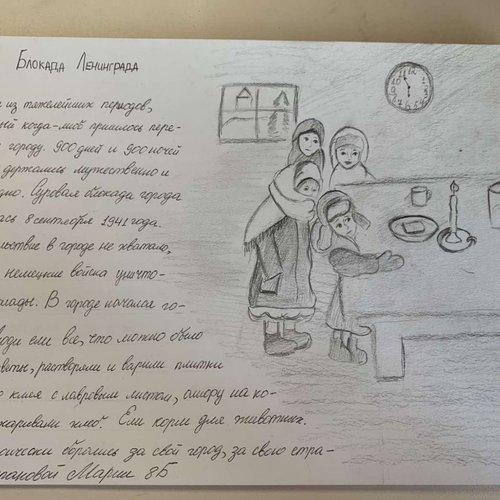 Блокада Ленинграда
из тяжелейших периодов,
когда-либо пришлось пере-
городу. 900 дней и 900 ночей
держались мужественно и
Суровая блокада города
ась 8 сентября 1941 года.
в городе не хватало,
немецкие войска уничто-
В городе начался го-
ели все, что можно было
растворяли и варили плитки
клея с лавровым листом, на ко-
хлеб. Ели корм для животных.
сражались за свой город, за свою стра-
Марии 8Б